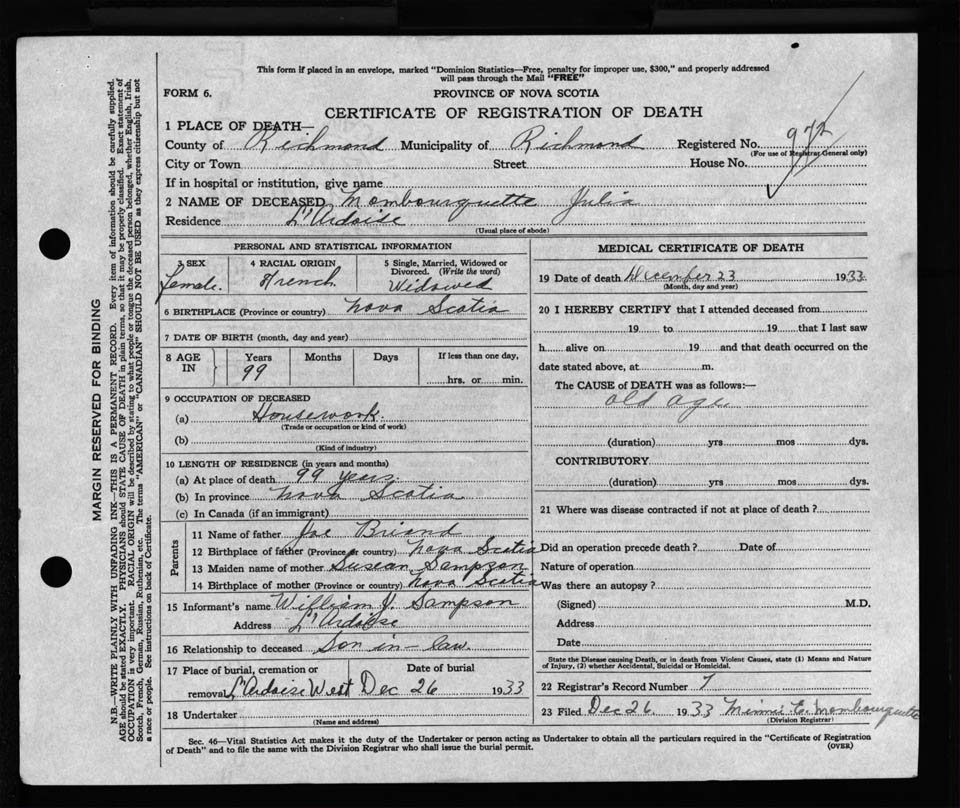 This form if placed in an envelope, marked "Dominion Statistics—Free, penalty for improper use, $300," and properly addressed
will pass through the Mail "FREE"
FORM 6.
PROVINCE OF NOVA SCOTIA
CERTIFICATE OF REGISTRATION OF DEATH
1 PLACE OF DEATH—
County of Richmond Municipality of Richmond Registered No.
(For use of Registrar General only)
City or Town Street House No.
If in hospital or institution, give name
2 NAME OF DECEASED Mombourquette Julia
Residence L'Ardoise
(Usual place of abode)
PERSONAL AND STATISTICAL INFORMATION
3 SEX 4 RACIAL ORIGIN 5 Single, Married, Widowed or
Divorced. (Write the word)
Female. French Widowed
6 BIRTHPLACE (Province or country) Nova Scotia
7 DATE OF BIRTH (month, day and year)
8 AGE IN Years Months Days If less than one day,
99 hrs. or min.
9 OCCUPATION OF DECEASED
(a) Housework.
(Trade or occupation or kind of work)
(b)
(Kind of industry)
10 LENGTH OF RESIDENCE (in years and months)
(a) At place of death 99 years
(b) In province Nova Scotia
(c) In Canada (if an immigrant)
Parents
11 Name of father Joe Briand
12 Birthplace of father (Province or country) Nova Scotia
13 Maiden name of mother Susean Sampson
14 Birthplace of mother (Province or country) Nova Scotia
15 Informant's name William J. Sampson
Address L'Ardoise
16 Relationship to deceased Son in-law
17 Place of burial, cremation or Date of burial
removal L'Ardoise West Dec 26 1933
18 Undertaker
(Name and address)
MEDICAL CERTIFICATE OF DEATH
19 Date of death December 23 1933
(Month, day and year)
20 I HEREBY CERTIFY that I attended deceased from
19 to 19 that I last saw
h alive on 19 and that death occurred on the
date stated above, at m.
The CAUSE of DEATH was as follows:—
old age
(duration) yrs mos dys.
CONTRIBUTORY
(duration) yrs. mos dys.
21 Where was disease contracted if not at place of death ?
Did an operation precede death ? Date of
Nature of operation
Was there an autopsy ?
(Signed) M.D.
Address
Date
State the Disease causing Death, or in death from Violent Causes, state (1) Means and Nature
of Injury, (2) whether Accidental, Suicidal or Homicidal.
22 Registrar's Record Number 7
23 Filed Dec 26 1933 Minnie E. Mombourquette
(Division Registrar)
Sec. 46—Vital Statistics Act makes it the duty of the Undertaker or person acting as Undertaker to obtain all the particulars required in the "Certificate of Registration
of Death" and to file the same with the Division Registrar who shall issue the burial permit.
(OVER)
MARGIN RESERVED FOR BINDING
N.B.—WRITE PLAINLY WITH UNFADING INK—THIS IS A PERMANENT RECORD. Every item of information should be carefully supplied.
AGE should be stated EXACTLY. PHYSICIANS should STATE CAUSE OF DEATH in plain terms, so that it may be properly classified. Exact statement of
OCCUPATION is very important. RACIAL ORIGIN will be described by stating to what people or tongue the deceased person belonged, whether English, Irish,
Scotch, French, German, Russian, Ruthenian, etc. The terms "AMERICAN" or "CANADIAN" SHOULD NOT BE USED as they express citizenship but not
a race or people. See instructions on back of Certificate.